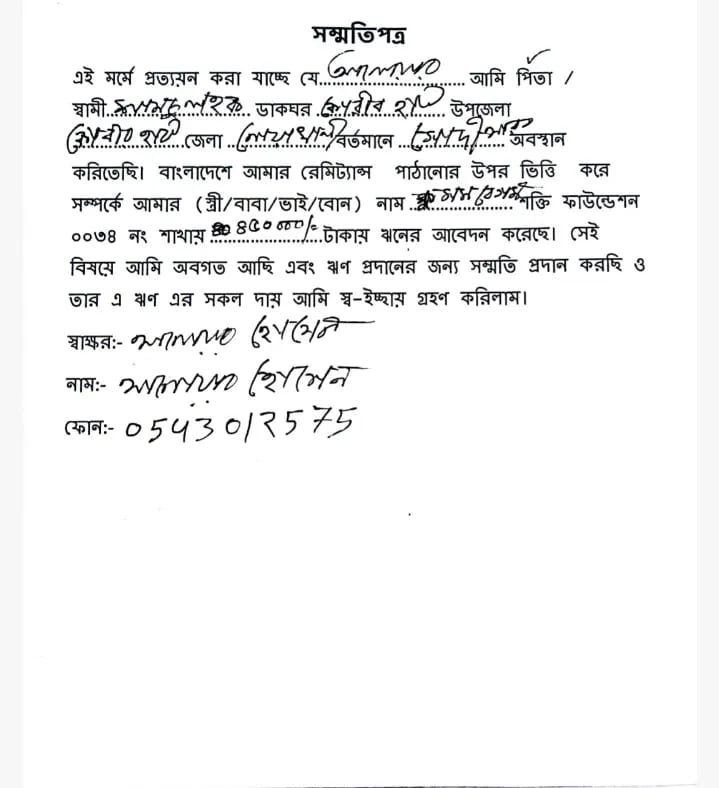 সম্মতিপত্র
এই মর্মে প্রত্যয়ন করা যাচ্ছে যে.................. আমি পিতা /
স্বামী.................. ডাকঘর .কবীর হাট.. উপজেলা
কবীর হাট জেলা ..নোয়াখালী বর্তমানে ...সৌদি আরব অবস্থান
করিতেছি। বাংলাদেশে আমার রেমিট্যান্স পাঠানোর উপর ভিত্তি করে
সম্পর্কে আমার (স্ত্রী/বাবা/ভাই/বোন) নাম .................. শক্তি ফাউন্ডেশন
০০৭৪ নং শাখায় ..................টাকায় ঋনের আবেদন করেছে। সেই
বিষয়ে আমি অবগত আছি এবং ঋণ প্রদানের জন্য সম্মতি প্রদান করছি ও
তার এ ঋণ এর সকল দায় আমি স্ব-ইচ্ছায় গ্রহণ করিলাম।
স্বাক্ষর:- হোসেন
নাম:- হোসেন
ফোন:- 0543012575